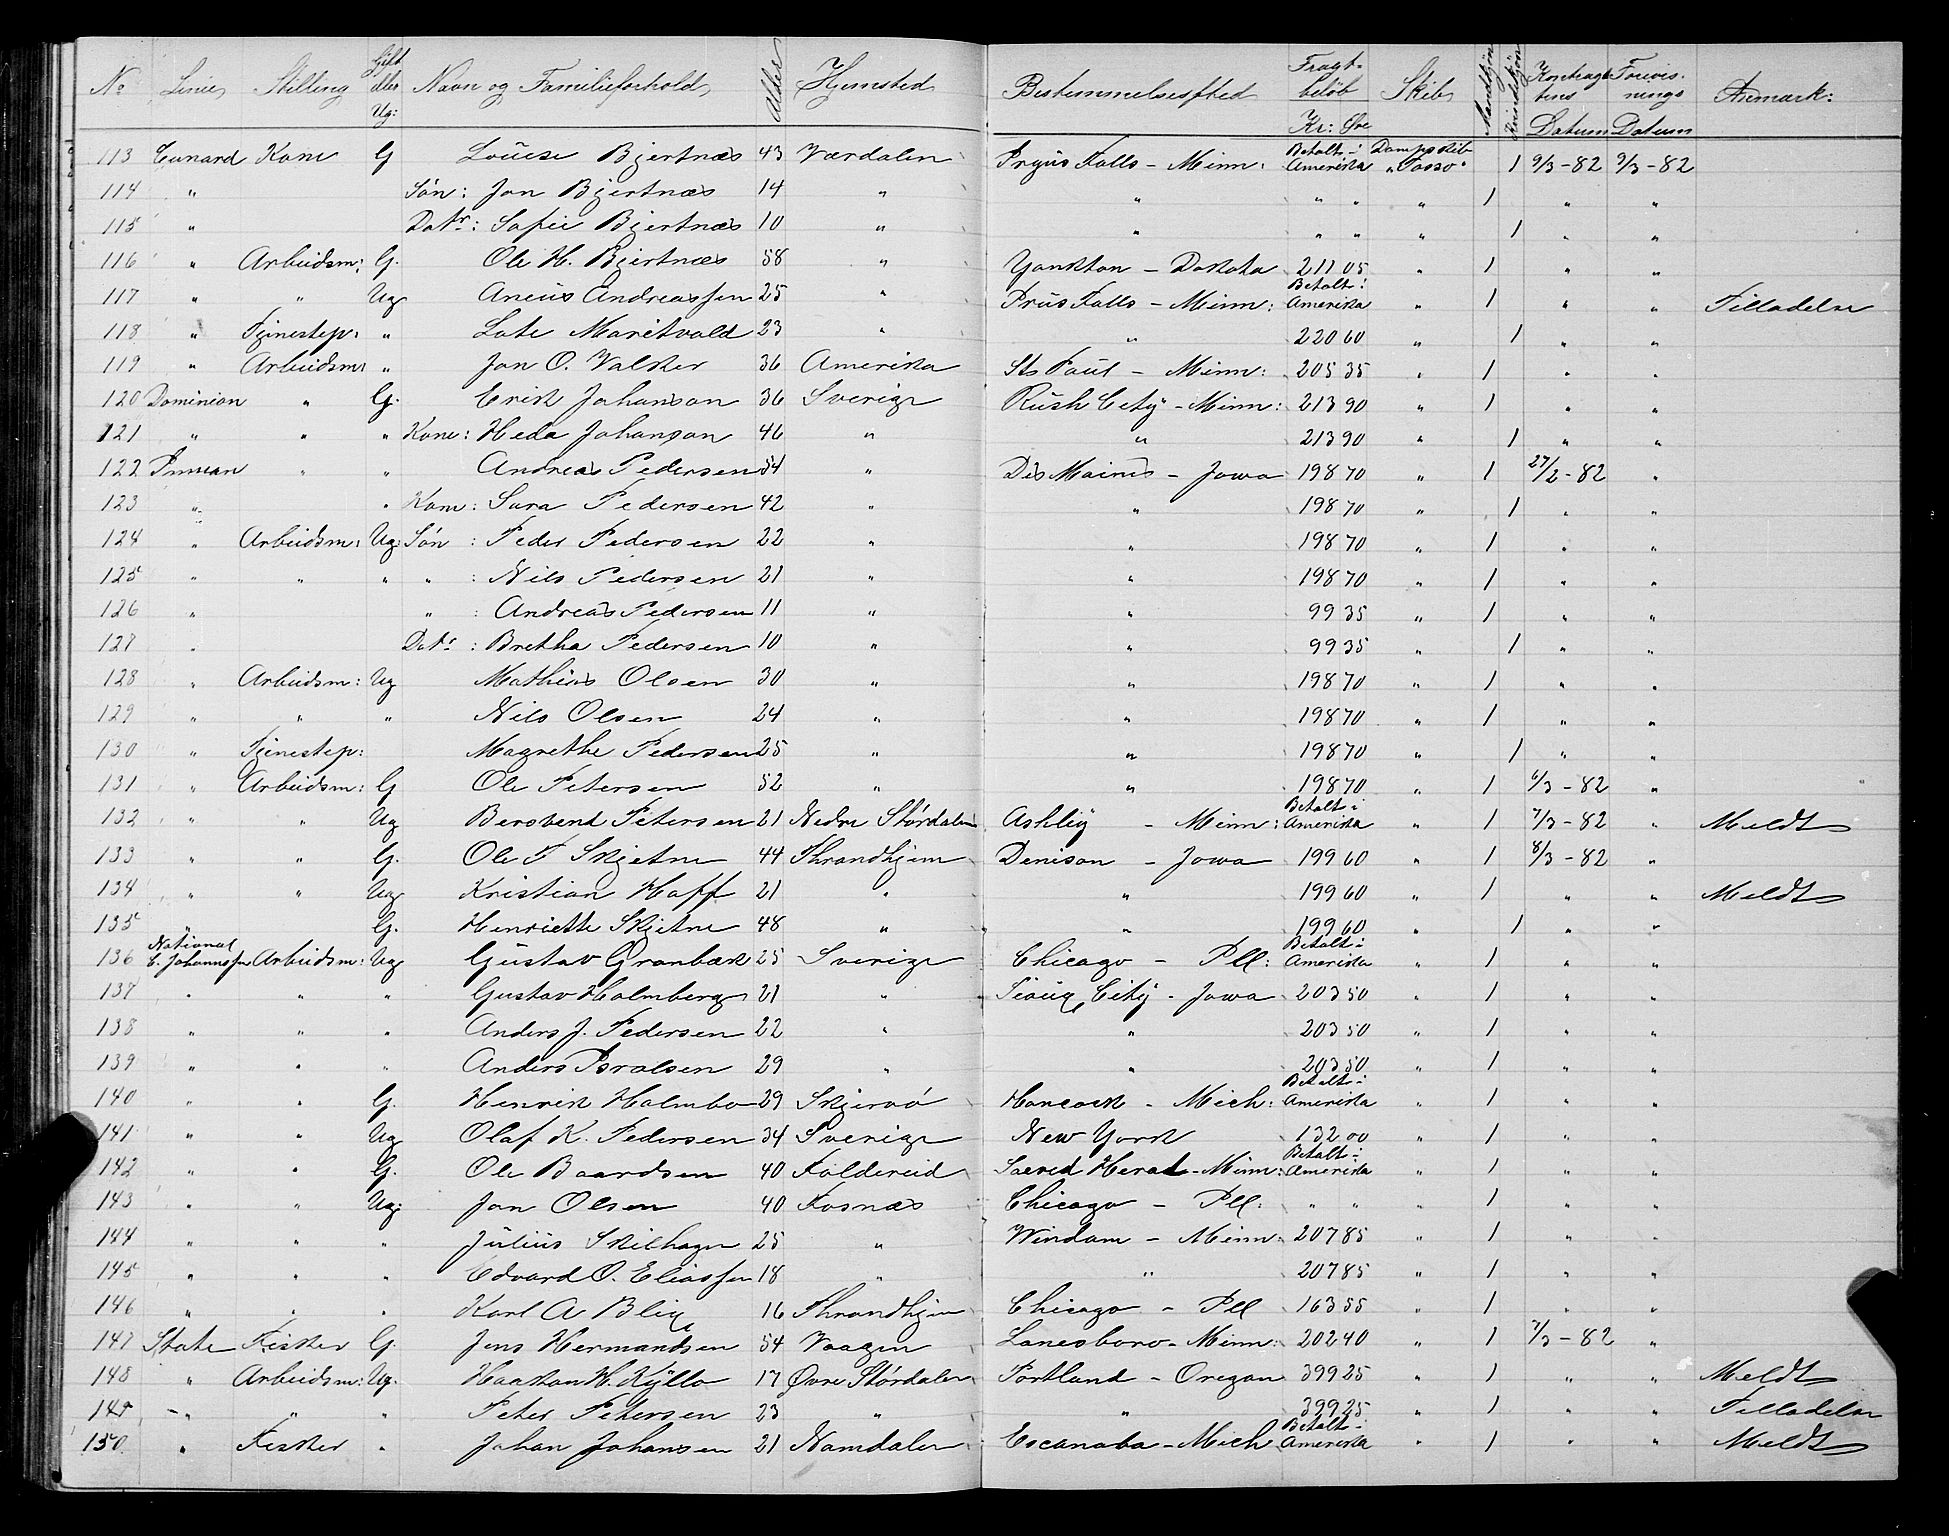 No Linie Stilling Gift eller Ug: Navn og Familieforhold Alder Hjemsted Bestemmelsessted Fragt-beløb Kr: Øre Skib Mandkjøn Kvindkjøn Kontraktens Datum Forevisnings Datum Anmærk:
113 Cunard Kone G Louise Bjertnæs 43 Værdalen Frgus Falls - Minn: Betalt i Amerika Dampskib "Tasso" 1 9/3-82 9/3-82
114 " Søn: Jon Bjertnæs 14 " " " " " 1 " "
115 " Datr: Sofie Bjertnæs 10 " " " " " 1 " "
116 " Arbeidsm: G. Ole H. Bjertnæs 58 " Yankton - Dakota 211 05 " 1 " "
117 " " Ug Aneus Andreassen 25 " Frus Falls - Minn: Betalt i Amerika " 1 " " Tilladelse
118 " Tjenestep: " Late Maritvold 23 " " 220 60 " 1 " "
119 " Arbeidsm: " Jon O. Valsker 36 Amerika St Paul - Minn: 205 35 " 1 " "
120 Dominion " G. Erik Johanson 36 Sverige Rush City - Minn: 213 90 " 1 " "
121 " " " Kone: Heda Johanson 46 " " 213 90 " 1 " "
122 Inman " " Andreas Pedersen 54 " Des Maines - Jowa 198 70 " 1 27/2-82 "
123 " " Kone: Sara Pedersen 42 " " 198 70 " 1 " "
124 " Arbeidsm: Ug: Søn: Peder Pedersen 22 " " 198 70 " 1 " "
125 " " " " : Nils Pedersen 21 " " 198 70 " 1 " "
126 " " : Andreas Pedersen 11 " " 99 35 " 1 " "
127 " Datr: Bretha Pedersen 10 " " 99 35 " 1 " "
128 " Arbeidsm: Ug Mathias Olsen 30 " " 198 70 " 1 " "
129 " " " Nils Olsen 24 " " 198 70 " 1 " "
130 " Tjenestep: Magrethe Pedersen 25 " " 198 70 " 1 " "
131 " Arbeidsm: G Ole Petersen 52 " " 198 70 " 1 6/3-82 "
132 " " Ug Berovend Petersen 21 Nedre Størdalen Ashley - Minn: Betalt i Amerika " 1 7/3-82 " Meldt
133 " " G. Ole T Skjetne 44 Throndhjem Denison - Jowa 199 60 " 1 8/3-82 "
134 " " Ug Kristian Hoff 21 " " 199 60 " 1 " " Meldt
135 " G. Henriette Skjetne 48 " " 199 60 " 1 " "
136 National C. Johannssen Arbeidsm: Ug Gustav Granbæk 25 Sverige Chicago - Ill: Betalt i Amerika " 1 " "
137 " " " Gustav Holmberg 21 " Sioux City - Jowa 203 50 " 1 " "
138 " " " Anders J. Pedersen 22 " " 203 50 " 1 " "
139 " " " Anders Israelsen 29 " " 203 50 " 1 " "
140 " " G. Henrik Holmbo 29 Skjervø Hancock - Mich: Betalt i Amerika " 1 " "
141 " " Ug Olaf K. Pedersen 34 Sverige New York 132 00 " 1 " "
142 " " G. Ole Baardsen 40 Foldereid Sacred Herat - Minn: Betalt i Amerika " 1 " "
143 " " Ug: Jon Olsen 40 Fosnæs Chicago - Ill: " " " 1 " "
144 " " " Julius Skilhagen 25 " Windam - Minn: 207 85 " 1 " "
145 " " " Edvard O. Eliassen 18 " " 207 85 " 1 " "
146 " " " Karl A Blix 16 Throndhjem Chicago - Ill 163 55 " 1 " "
147 State Fisker G. Jens Hermandsen 54 Vaagen Lanesboro - Minn: 202 40 " 1 7/3-82 "
148 " Arbeidsm: Ug. Haakon H. Kyllo 17 Øvre Størdalen Portland - Oregon 399 25 " 1 " " Meldt
149 " " " Peter Petersen 23 " " 399 25 " 1 " " Tilladelse
150 " Fisker " Johan Johansen 21 Namdalen Escanaba - Mich Betalt i Amerika " 1 " " Meldt